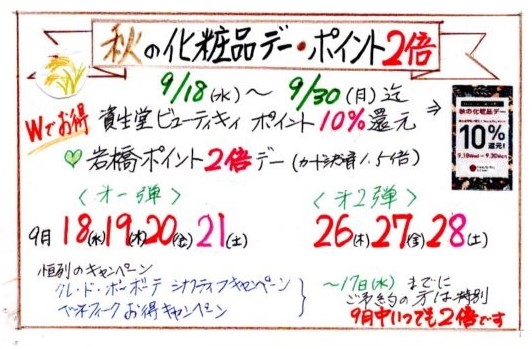 秋の化粧品デー・ポイント2倍
9/18(水)～9/30(月)迄
Wでお得
資生堂ビューティキィ ポイント10%還元
⇒
秋の化粧品デー
10%
還元!
9.18Wed-9.30Mon
♡岩橋ポイント2倍デー(カード決済1.5倍)
〈オ一弾〉
〈オ2弾〉
9月18(水)19(木)20(金)21(土)
26(木)27(金)28(土)
恒例のキャンペーン
クレ・ド・ポーボーテ シナクティフキャンペーン
ベネフィーク お得キャンペーン
～17日(水)までに
ご予約の方は特別
9月中いつでも2倍です